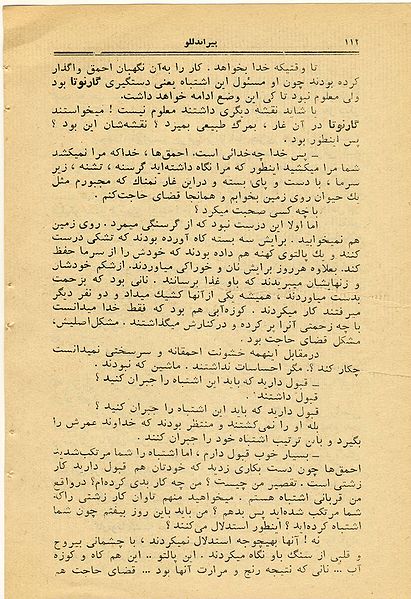 ۱۱۲
پیراندللو
تا وقتیکه خدا بخواهد . کار را به‌آن نگهبان احمق واگذار
کرده بودند چون او مسئول این اشتباه یعنی دستگیری گارنوتا بود
ولی معلوم نبود تا کی این وضع ادامه خواهد داشت.
یا شاید نقشه دیگری داشتند معلوم نیست ! میخواستند
گارنوتا در آن غار ، بمرگ طبیعی بمیرد ؟ نقشه‌شان این بود ؟
پس اینطور بود .
ــ پس خدا چه‌خدائی است. احمق‌ها ، خداکه مرا نمیکشد
شما مرا میکشید اینطور که مرا نگاه داشته‌اید گرسنه ، تشنه ، زیر
سرما ، با دست و پای بسته و دراین غار نمناك که مجبورم مثل
یك حیوان روی زمین بخوابم و همانجا قضای حاجت‌کنم .
با چه کسی صحبت میکرد ؟
اما اولا این درست نبود که از گرسنگی میمرد . روی زمین
هم نمیخوابید . برایش سه بسته کاه آورده بودند که تشکی درست
کنند و یك پالتوی کهنه هم داده بودند که خودش را از سرما حفظ
کند. بعلاوه هرروز برایش نان و خوراکی میاوردند. ازشکم خودشان
و زنهایشان میبریدند که باو غذا برسانند . نانی بود که بزحمت
بدست میاوردند ، همیشه یکی ازآنها کشیك میداد و دو نفر دیگر
میرفتند کار میکردند . کوزه‌آبی هم بود که فقط خدا میدانست
با چه زحمتی آنرا پر کرده و درکنارش میگذاشتند . مشکل‌اصلیش،
مشکل قضای حاجت بود .
درمقابل اینهمه خشونت احمقانه و سرسختی نمیدانست
چکار کند ؟. مگر احساسات نداشتند . ماشین که نبودند .
ــ قبول دارید که باید این اشتباه را جبران کنید ؟
قبول داشتند .
قبول دارید که باید این اشتباه را جبران کنید ؟
بله او را نمی‌کشتند و منتظر بودند که خداوند عمرش را
بگیرد و باین ترتیب اشتباه خود را جبران کنند .
ــ بسیار خوب قبول دارم ، اما اشتباه را شما مرتکب‌شدید
احمق‌ها چون دست بکاری زدید که خودتان هم قبول دارید کار
زشتی است . تقصیر من چیست ؟ من چه کار بدی کرده‌ام؟ درواقع
من قربانی اشتباه هستم . میخواهید منهم تاوان کار زشتی راکه
شما مرتکب شده‌اید پس بدهم ؟ من باید باین روز بیفتم چون شما
اشتباه کرده‌اید ؟ اینطور استدلال می‌کنند ؟
نه ! آنها بهیچوجه استدلال نمیکردند ، با چشمانی بیروح
و قلبی از سنگ باو نگاه میکردند . این پالتو .. این هم کاه و کوزه
آب ... نانی که نتیجه رنج و مرارت آنها بود ... قضای حاجت هم